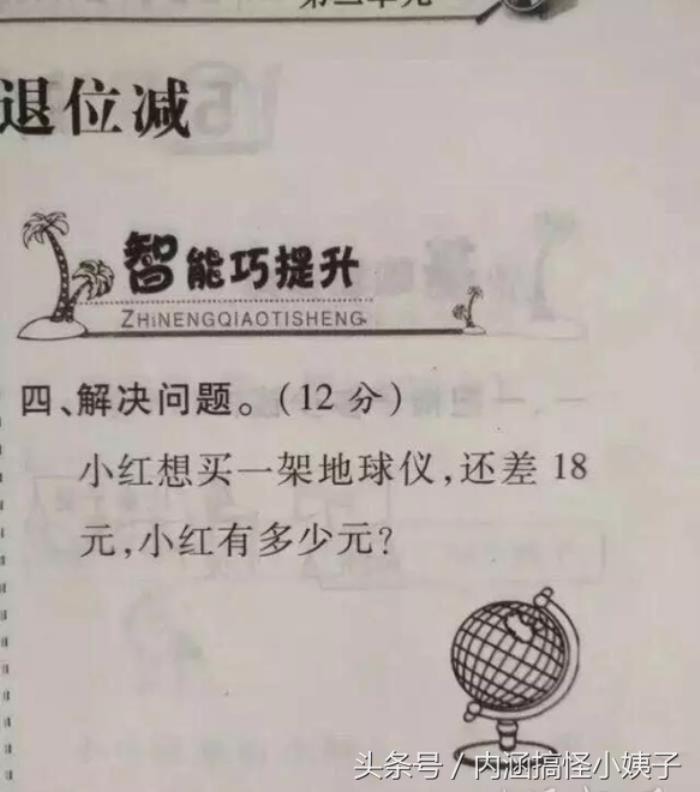 第二单元
退位减
智能巧提升
ZHiNENGQIAOTISHENG
四、解决问题。(12 分)
小红想买一架地球仪,还差 18
元,小红有多少元?
头条号 / 内涵搞怪小姨子